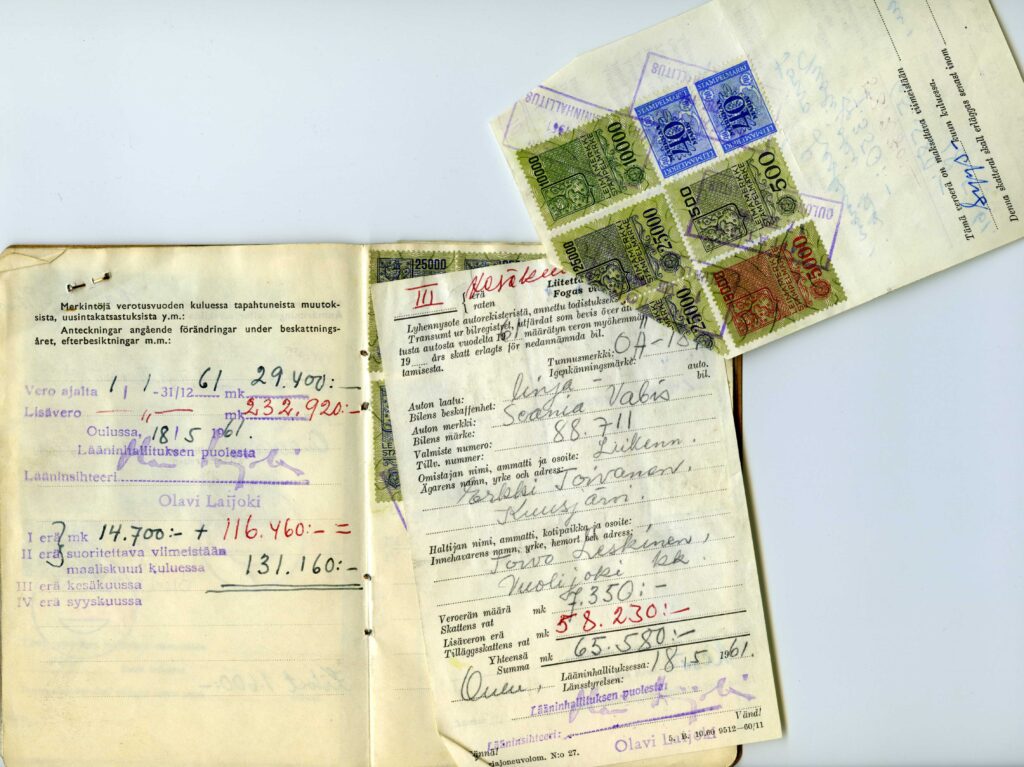 Merkintöjä verotusvuoden kuluessa tapahtuneista muutok-
sista, uusintakatsastuksista y.m.:
Anteckningar angående förändringar under beskattnings-
året, efterbesiktningar m.m.:
Vero ajalta 1/1 -31/12 61 mk 29.400:-
Lisävero — „ — mk 232.920:-
Oulussa, 18/5 1961.
Lääninhallituksen puolesta
Lääninsihteeri
Olavi Laijoki
I erä mk 14.700:- + 116.460:- =
II erä suoritettava viimeistään
maaliskuun kuluessa 131.160:-
III erä kesäkuussa
IV erä syyskuussa
25000
III erä
raten
Liitettä
Fogas vi
Lyhennysote autorekisteristä, annettu todistukse
Transumt ur bilregistret, utfärdat som bevis över at
tusta autosta vuodelta 1961 määrätyn veron myöhemm
19 års skatt erlagts för nedannämnda bil.
tamisesta.
Tunnusmerkki: OA-18
Igenkänningsmärke:
Auton laatu: linja- auto.
Bilens beskaffenhet: bil.
Auton merkki: Scania Vabis
Bilens märke:
Valmiste numero: 88.711
Tillv. nummer:
Omistajan nimi, ammatti ja osoite: Liikenn.
Ägarens namn, yrke och adress:
Erkki Toivanen.
Haltijan nimi, ammatti, kotipaikka ja osoite:
Innehavarens namn, yrke, hemort och adress:
Toivo Leskinen,
Vuolijoki kk
Veroerän määrä mk 7.350:-
Skattens rat
Lisäveron erä mk 58.230:-
Tilläggsskattens rat
Yhteensä mk 65.580:-
Summa
Oulu, Lääninhallituksessa: 18/5 1961.
Länsstyrelsen:
Lääninhallituksen puolesta
Lääninsihteeri:
Olavi Laijoki
Vänd!
S. B. 10,66 9512—60/11
ajoneuvolom. N:o 27.
LÄÄNINHALLITUS
STÄMPELMÄRKE
40
LEIMAMERKKI
STÄMPELMÄRKE
40
LEIMAMERKKI
10000
500
25000
5000
25000
OULUN
Tämä veroerä on maksettava viimeistään
syys kuun kuluessa.
Denna skatterat skall erläggas senast inom